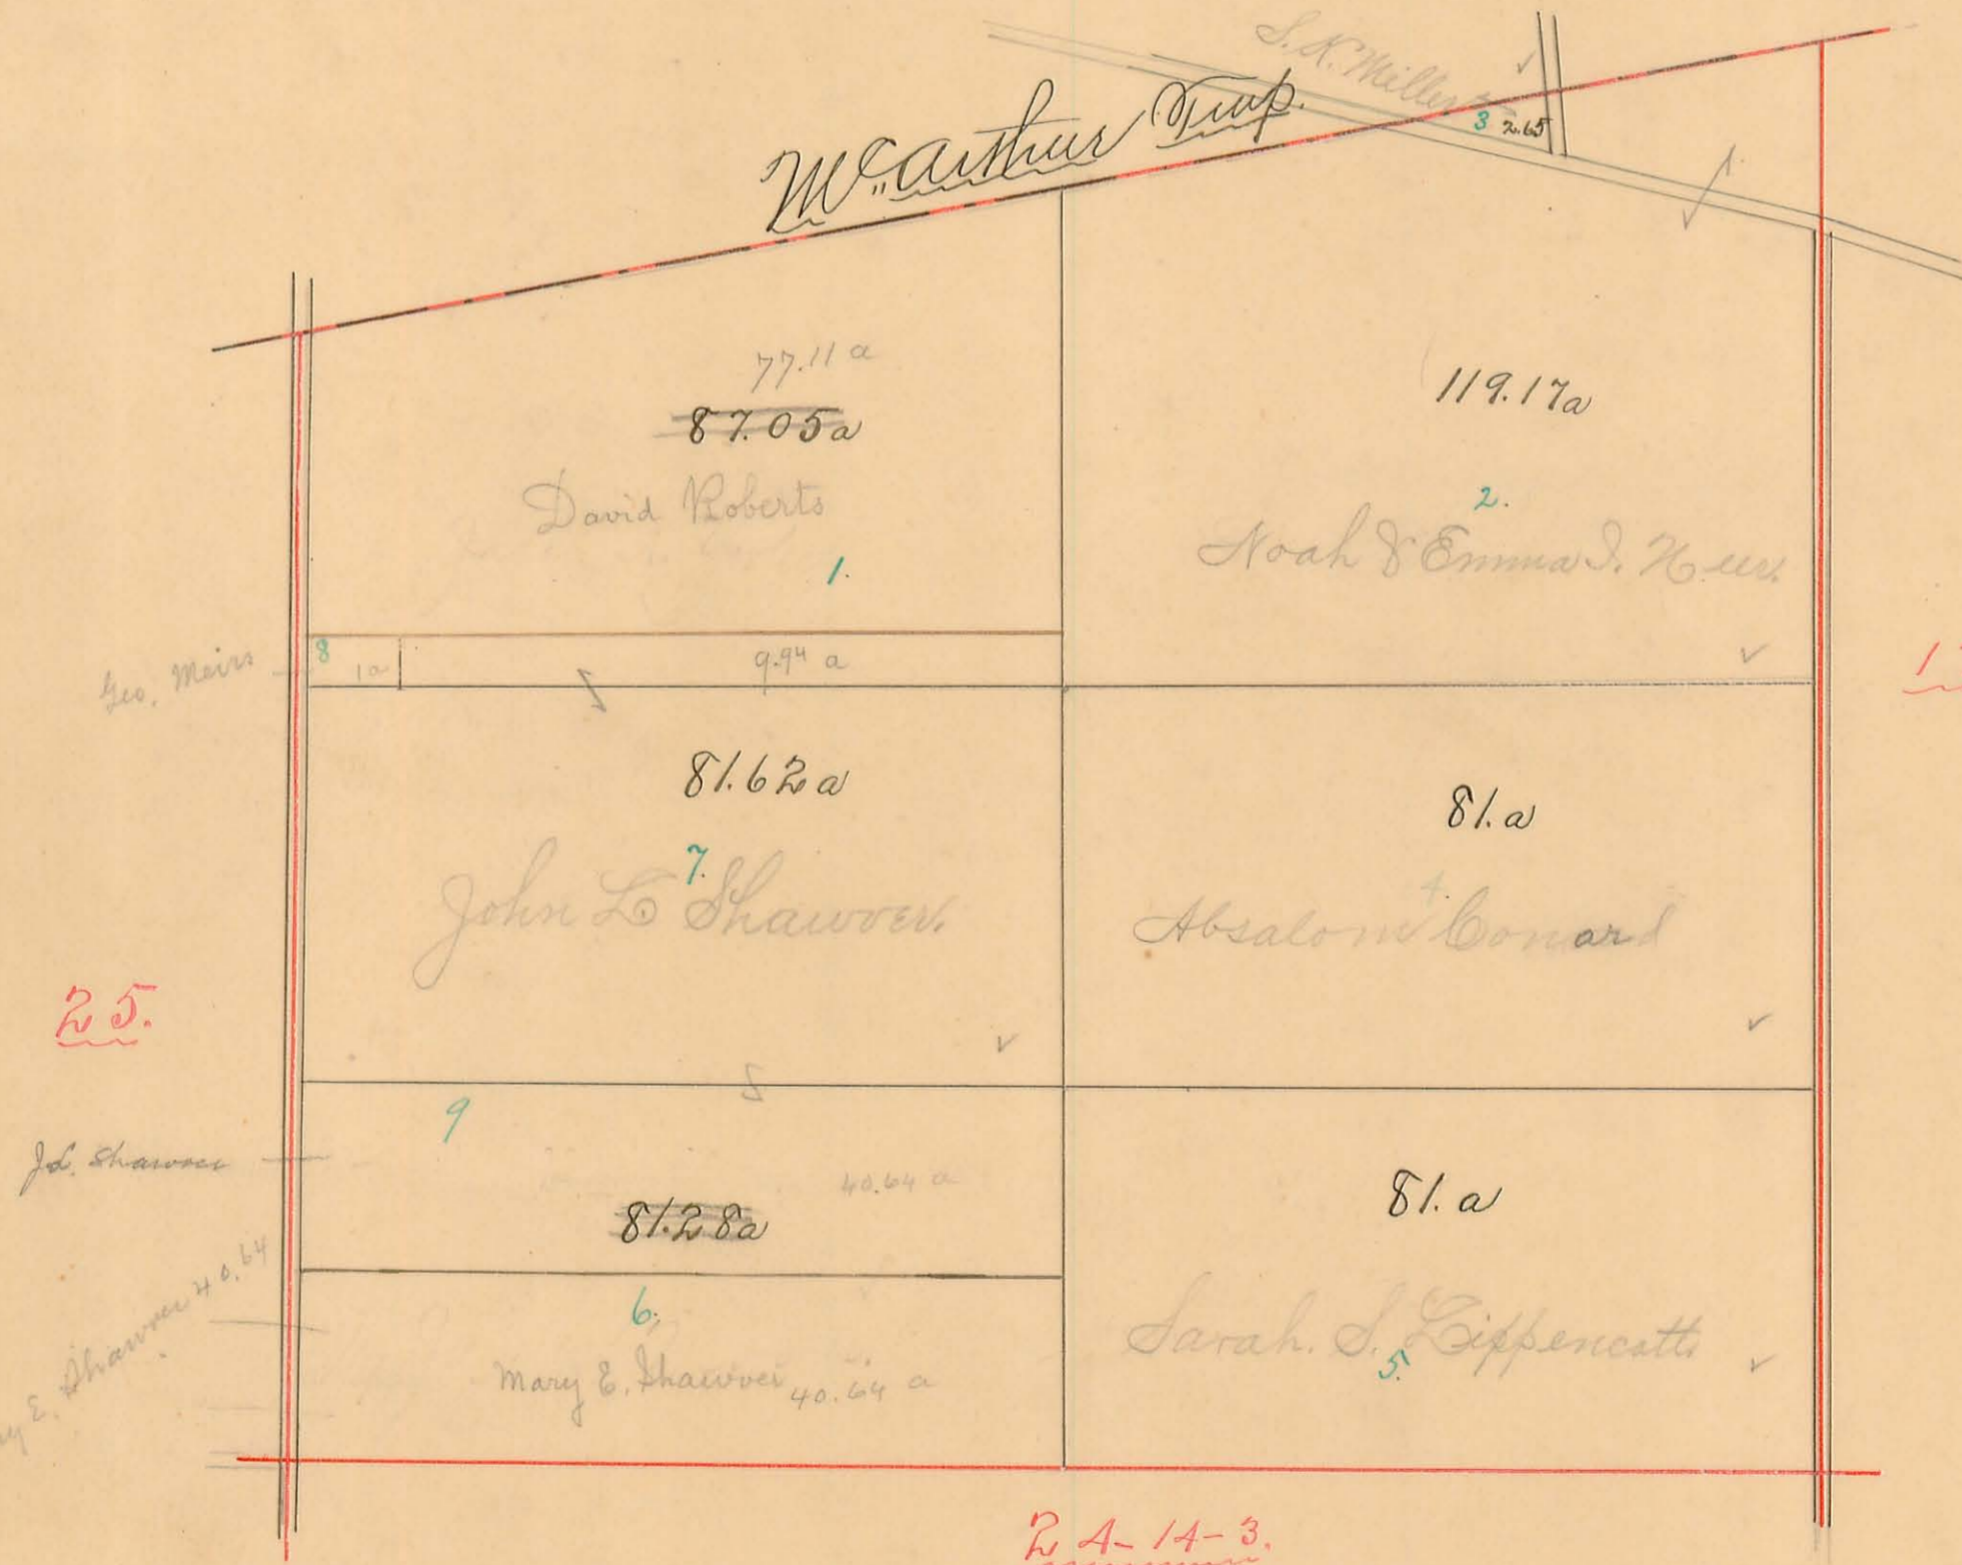 S. K. Miller
3 2.65
Mc. Arthur Twp.
77.11 a
87.05a
David Roberts
1.
119.17a
2.
Noah & Emma I. Neer.
Geo. Meirs
8
1a
9.94 a
81.62a
7.
John L Shawver.
81.a
4.
Absalom Conard
25.
9
J.L. Shawver
40.64 a
81.28a
81. a
E. Shawver 40.64
6.
Mary E. Shawver 40.64 a
Sarah. S. Lippencott
5.
24-14-3.